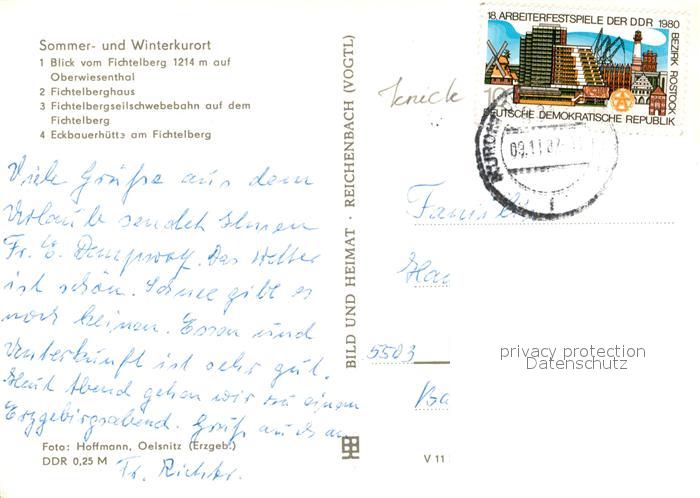 Sommer- und Winterkurort
1 Blick vom Fichtelberg 1214 m auf
Oberwiesenthal
2 Fichtelberghaus
3 Fichtelbergseilschwebebahn auf dem
Fichtelberg
4 Eckbauerhütte am Fichtelberg
Viele Grüße aus dem
Urlaub sendet Ihnen
Fr. E. Das Wetter
ist schön. Schnee gibt es
noch keinen. Essen und
Unterkunft ist sehr gut.
Heut Abend gehen wir zu einem
Erzgebirgsabend. Gruß auch an
Fr. Richter.
Foto: Hoffmann, Oelsnitz (Erzgeb.)
DDR 0,25 M
BILD UND HEIMAT · REICHENBACH (VOGTL)
V 11
knick
18. ARBEITERFESTSPIELE DER DDR 1980
BEZIRK ROSTOCK
10
DEUTSCHE DEMOKRATISCHE REPUBLIK
KURORT
09.11.87
Famil
Hau
5503
Ba
privacy protection
Datenschutz